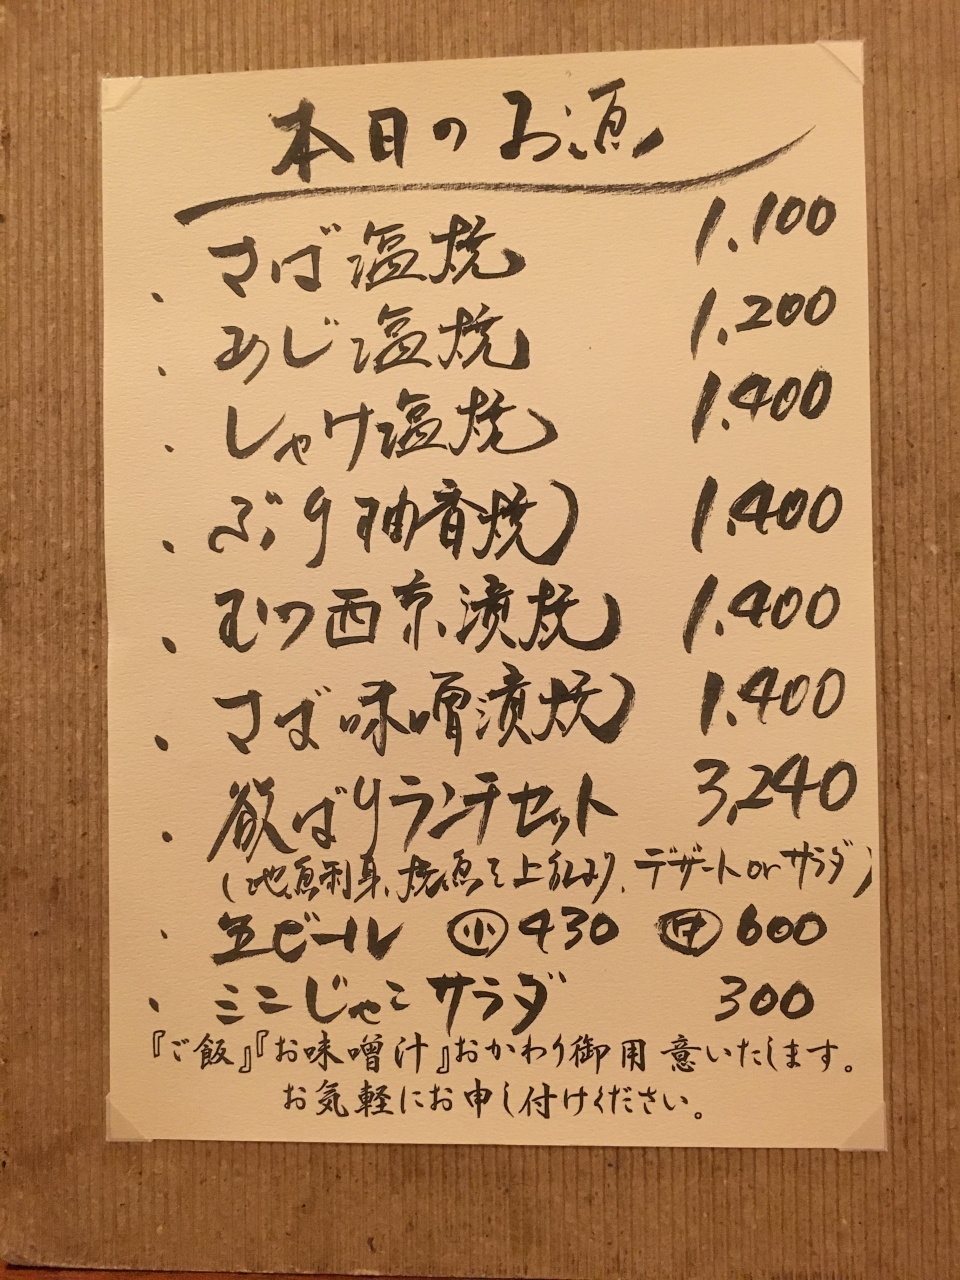 本日のお魚
・さば塩焼 1,100
・あじ塩焼 1,200
・しゃけ塩焼 1,400
・ぶり柚香焼 1,400
・むつ西京漬焼 1,400
・さば味噌漬焼 1,400
・欲ばりランチセット 3,240
(地魚刺身、焼魚を上記より、デザートorサラダ)
・生ビール ㊙小 430 ㊥ 600
・ミニじゃこサラダ 300
『ご飯』『お味噌汁』おかわり御用意いたします。
お気軽にお申し付けください。